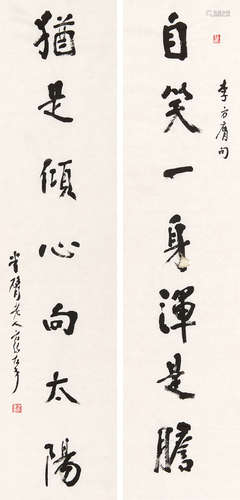 自笑一身渾是膽
李方膺句
猶是傾心向太陽
半臂老人